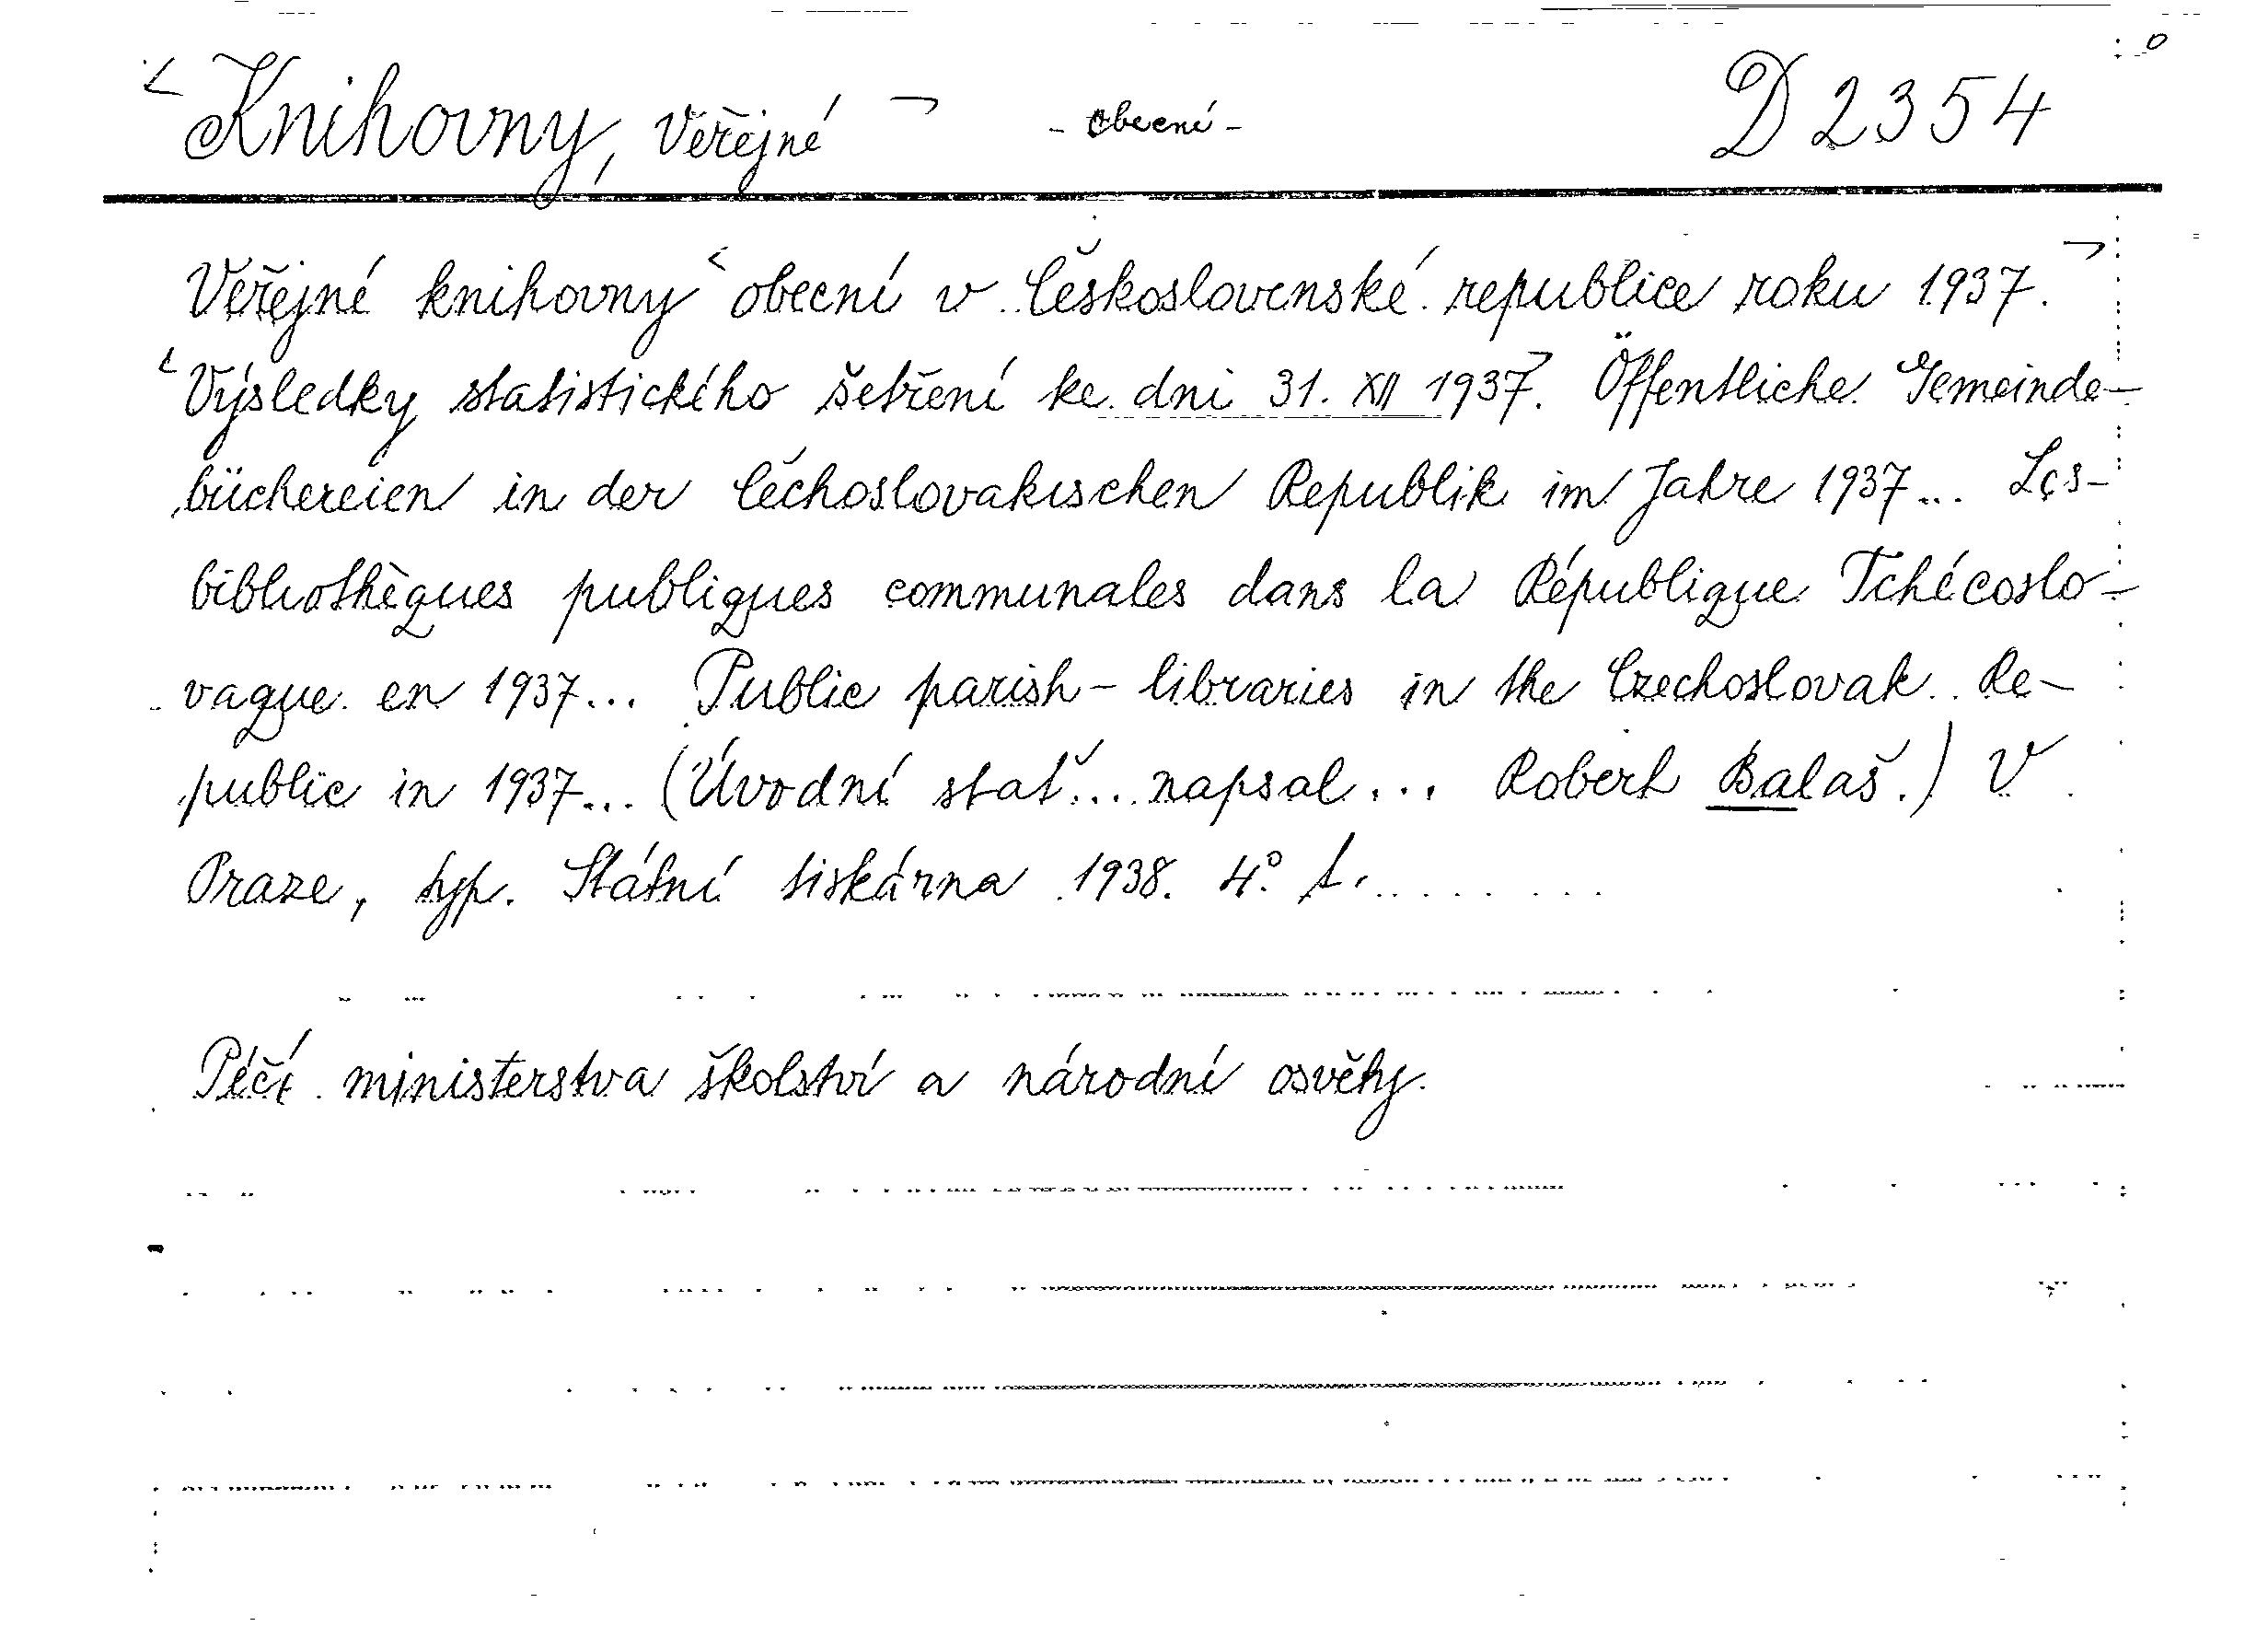 Knihovny, veřejné - obecní - D 2354
Veřejné knihovny obecní v Československé republice roku 1937.
Výsledky statistického šetření ke dni 31. XII 1937. Öffentliche Gemeinde-
büchereien in der Čechoslovakischen Republik im Jahre 1937... Les-
bibliothèques publiques communales dans la République Tchécoslo-
vaque en 1937... Public parish-libraries in the Czechoslovak Re-
public in 1937... (Úvodní stať... napsal... Robert Balaš.) V
Praze, typ. Státní tiskárna 1938. 4°.
Péčí ministerstva školství a národní osvěty.